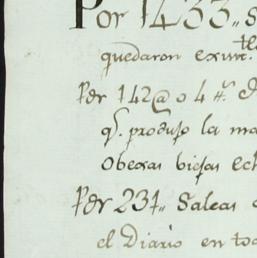 Por 1433,, S
quedaron exim.tes
Por 142@ o 4 tt.
q.e produjo la ma
Obejas biejas ech
Por 231,, Salcas
el Diario en to